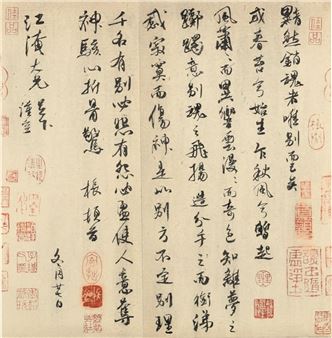 黯然銷魂者唯別而已矣
或春苔兮始生乍秋風兮蹔起
風蕭〻而異響雲漫〻而奇色知離夢之
躑躅意別魂之飛揚造分手而銜涕
感寂寞而傷神是以別方不定別理
千名有別必怨有怨必盈使人意奪
神駭心折骨驚 頓首
江浦大兄
謹空
月廿日